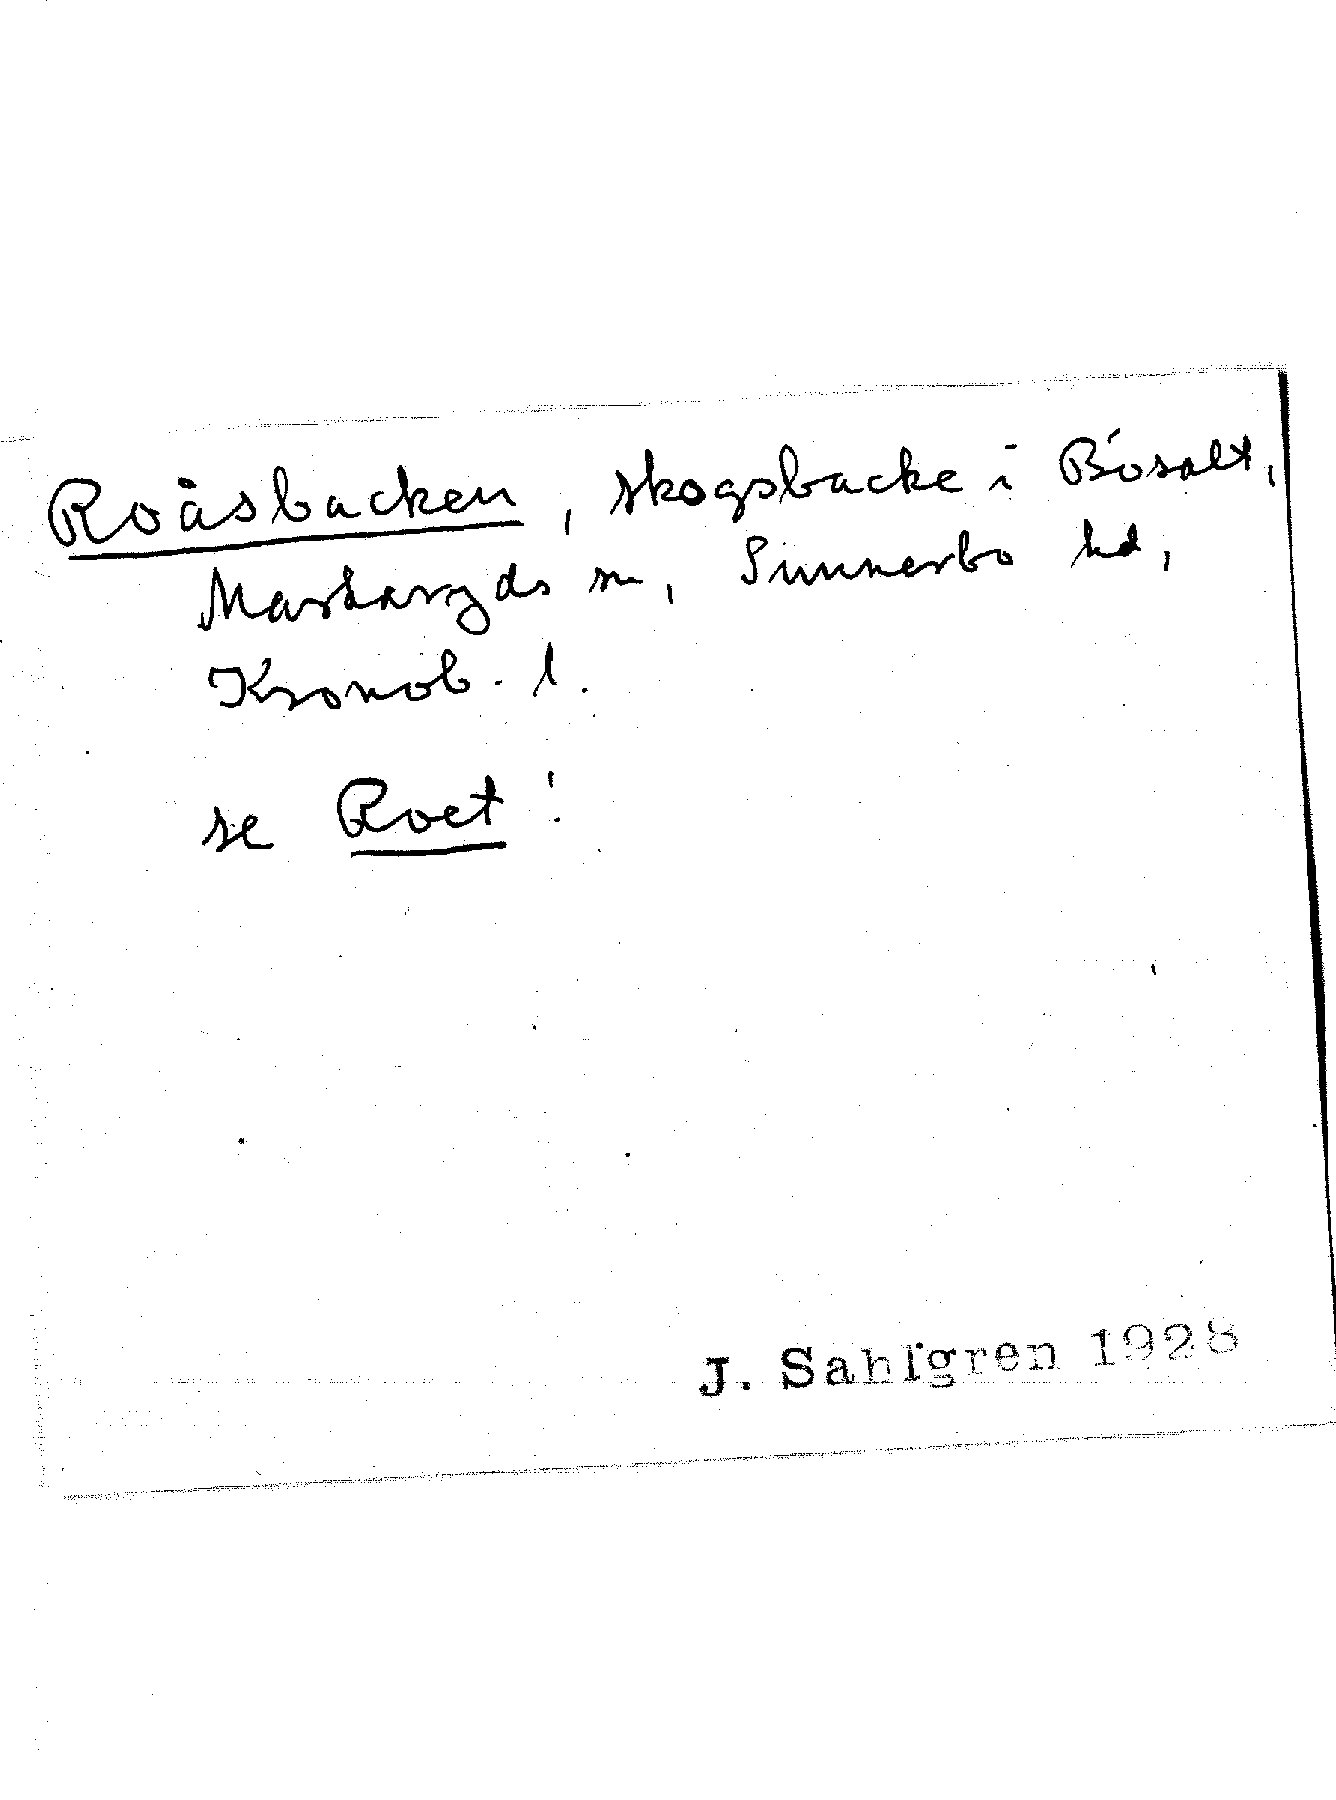 Roåsbacken, skogsbacke i Bösalt,
Markaryds sn, Sunnerbo hd,
Kronob. l.
se Roet!
J. Sahlgren 1928